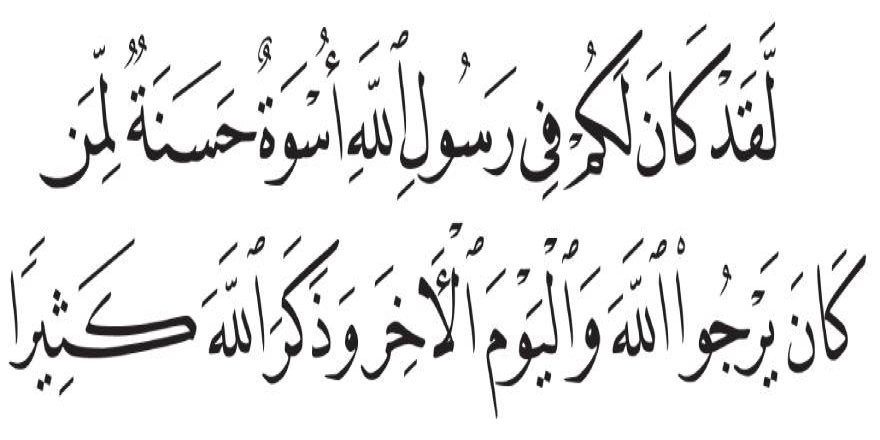 لَّقَدْ كَانَ لَكُمْ فِي رَسُولِ ٱللَّهِ أُسْوَةٌ حَسَنَةٌ لِّمَن
كَانَ يَرْجُوا۟ ٱللَّهَ وَٱلْيَوْمَ ٱلْأَخِرَ وَذَكَرَ ٱللَّهَ كَثِيرًا